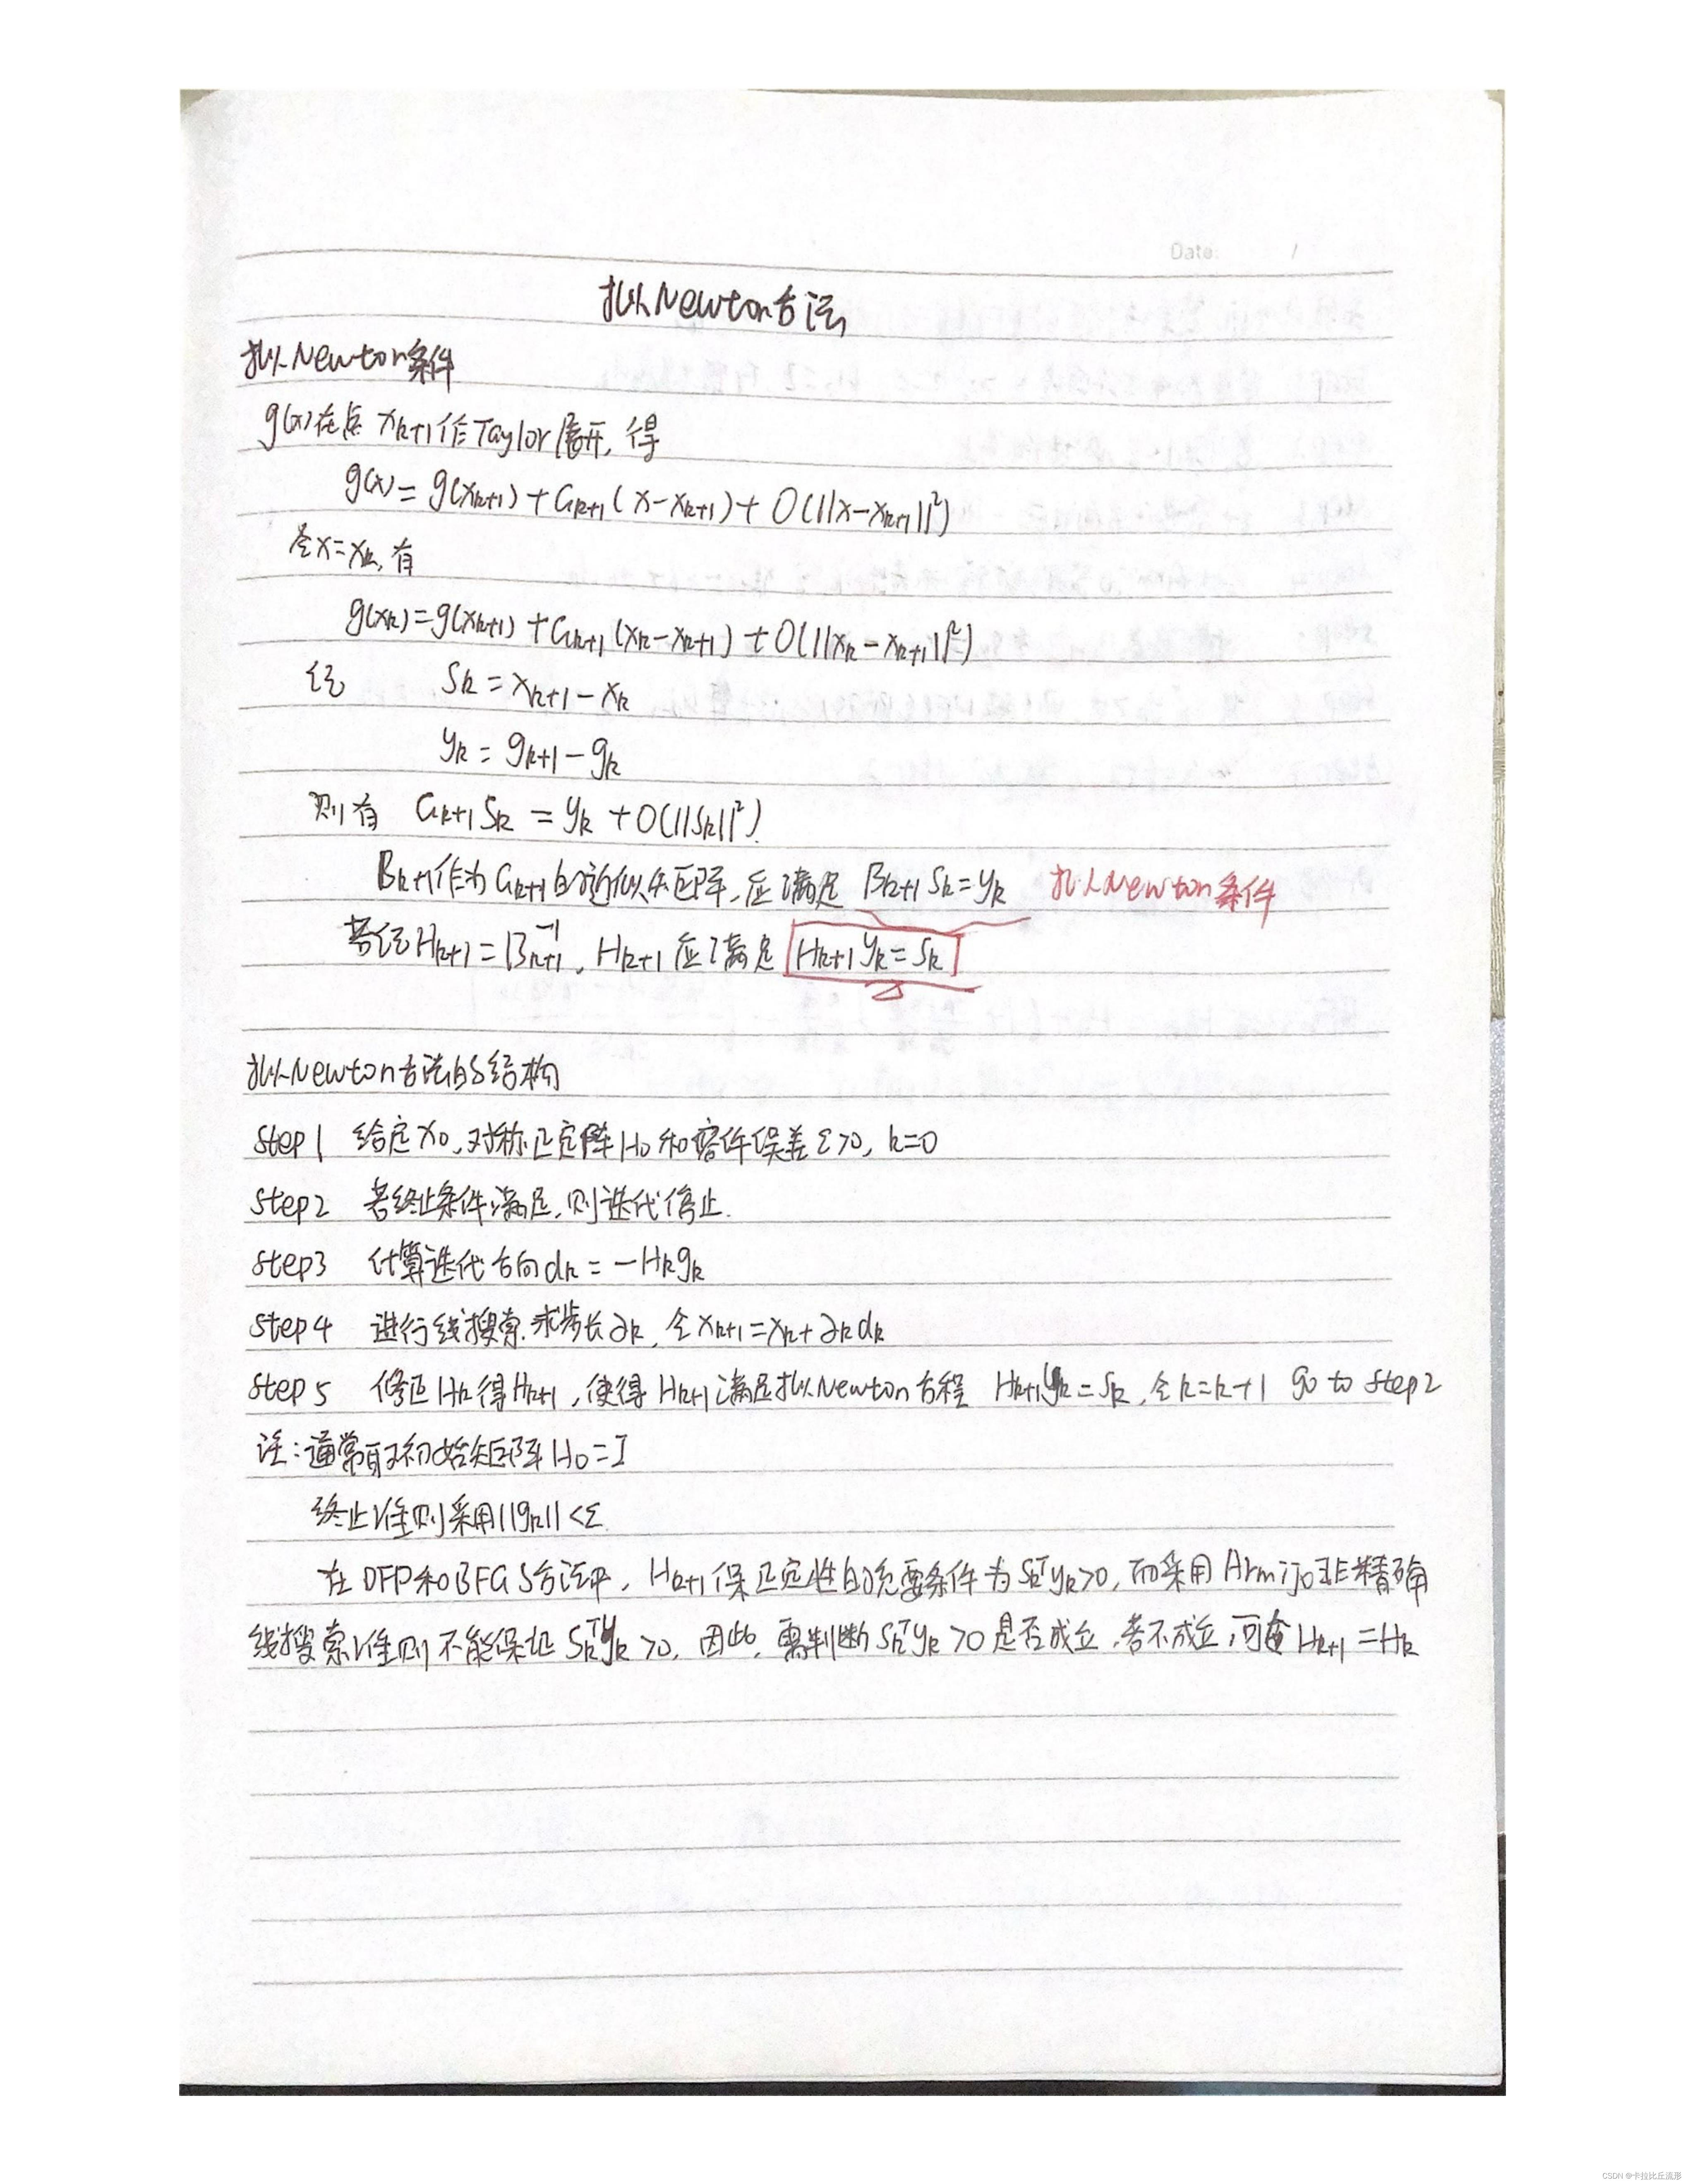 Date: /
拟Newton方法
拟Newton条件
g(x)在点 x_{k+1}作Taylor展开,得
g(x) = g(x_{k+1}) + G_{k+1}(x-x_{k+1}) + O(||x-x_{k+1}||²)
令x=x_k,有
g(x_k)=g(x_{k+1}) + G_{k+1}(x_k-x_{k+1}) + O(||x_k-x_{k+1}||²)
记 S_k = x_{k+1} - x_k
y_k = g_{k+1} - g_k
则有 G_{k+1} S_k = y_k + O(||S_k||²).
B_{k+1}作为G_{k+1}的近似矩阵,应满足 B_{k+1} S_k = y_k 拟Newton条件
若记H_{k+1} = B_{k+1}^{-1}, H_{k+1}应满足 H_{k+1} y_k = S_k
拟Newton方法的结构
Step1 给定x_0,对称正定阵H_0和容许误差ε>0, k=0
Step2 若终止条件满足,则迭代停止.
Step3 计算迭代方向d_k = -H_k g_k
Step4 进行线搜索求步长α_k, 令x_{k+1} = x_k + α_k d_k
Step5 修正H_k得H_{k+1},使得H_{k+1}满足拟Newton方程 H_{k+1} y_k = S_k,令k=k+1 go to step2
注:通常取初始矩阵H_0=I
终止准则采用||g_k||<ε
在DFP和BFGS方法中, H_{k+1}保正定性的充要条件为S_k^T y_k>0,而采用Armijo非精确
线搜索准则不能保证 S_k^T y_k >0, 因此, 需判断S_k^T y_k >0是否成立,若不成立,可令H_{k+1} = H_k
CSDN @卡拉比丘流形